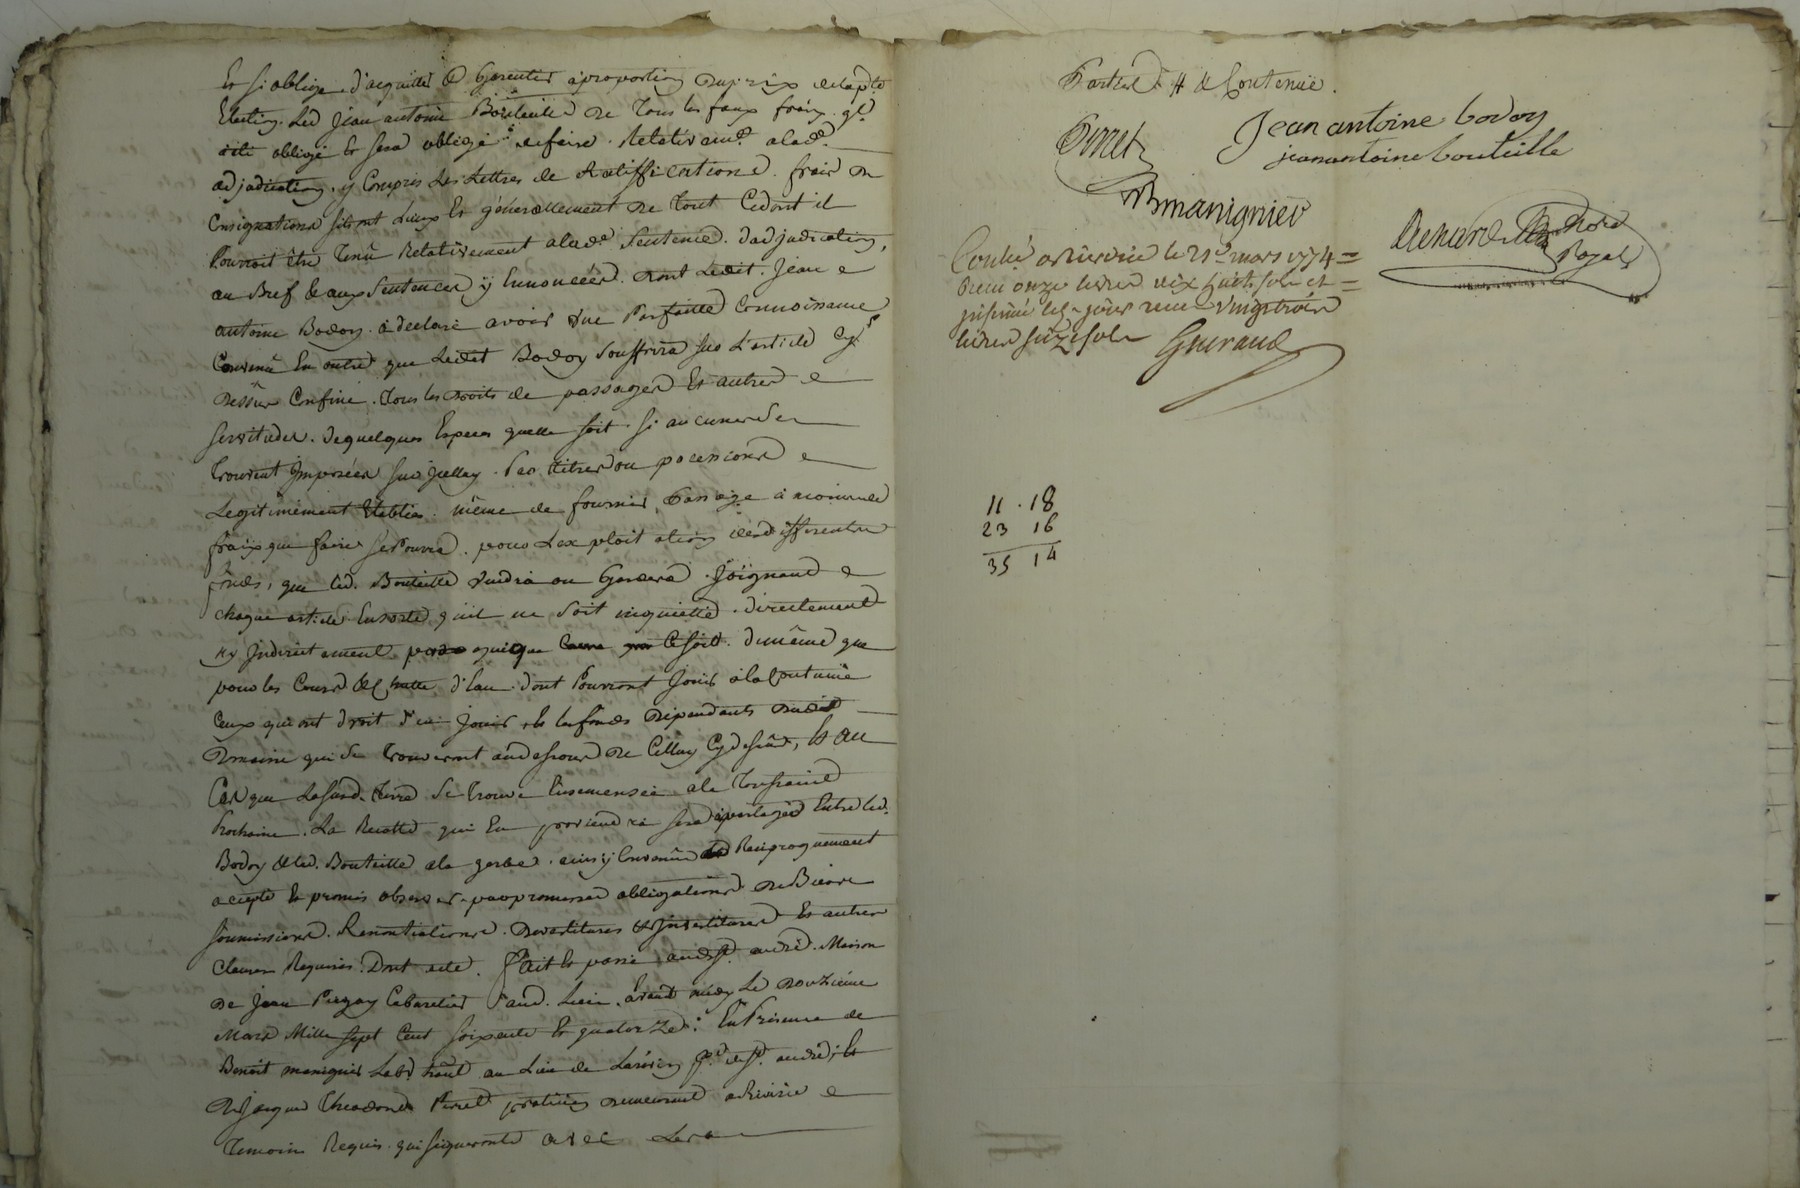 Et s'oblige d'acquitter & Garentir aproportion du prix de lapte
Election. Led Jean antoine Bouteille de Tous les faux frais ql
oblige Et sera obligé de faire Relativemt alade
adjudication, y Compris Les Lettres de Ratiffications. frais de
Consignations Et généralement de Tout Cedont il
Pourroit être Tenû Relativement alade Sentence. Dadjudication,
au Bref & aux Sentences y Ennoncées. dont Ledit. Jean
antoine Bodoy. à declaré avoir une Parfaitte Connoissance
Convenû En outre que Ledit Bodoy Souffrira sur L'article Cy
Dessûs Confiné. Tous les Droits de passages Et autres
Servitudes. de quelques Especes quelle soit si aucunes Se
trouvent Imposées sur Icelluy. Par titres ou pocessions
Legitimement Etablies. même de fournir Passage à moindre
fraix que faire se Pourra. pour Lexploitation des differents
fonds, que led. Bouteille Vendra ou Gardera. Joignant
chaque article Ensorte quil ne soit inquietté. directement
ny Indirectement quelque Ce soit. dumême que
pour les Cours & Chutte d'Eau. dont Pourront Jouir alaCoutume
Ceux qui ont droit d'en Jouir & les fonds Dépendants dudit
Domaine qui se trouveront audessous de Celluy Cydessus, Et au
Cas que Lasusd. Terre Se trouve Ensemensée ala Toussaint
Prochaine. La Recolte qui En proviendra sera partagée Entre led.
Bodoy & led. Bouteille ala gerbe. ainsy Convenû Reciproquement
accepté Et promis observer par promesses obligations de Biens
soumissions. Renontiations. Devestitures & Investitures Et autres
Clauses Requises. Dont acte. fait Et passé audt St. andré. Maison
De Jean Cabaretier aud. Lieu. avant midy Le Douzième
Mars Mille sept Cent Soixante Et quatorze: En Présence de
Benoit manignier Labr. hant au Lieu de Psse de St. andré; Et
De Jacques Theodore Perret praticien demeurant aRivirie
Temoins Requis qui signeront avec Les
Parties Et de Contenüe.
Perret
Jean antoine bodoy
jeanantoine bouteille
B manignier
Renard
Nore
Royal
Conlé arivirie le 21e mars 1774=
Receu onze livres dix huit sols et=
insinué led jour receu vingt trois
livres seize sols
Guiraud
11 . 18
23 16
35 14